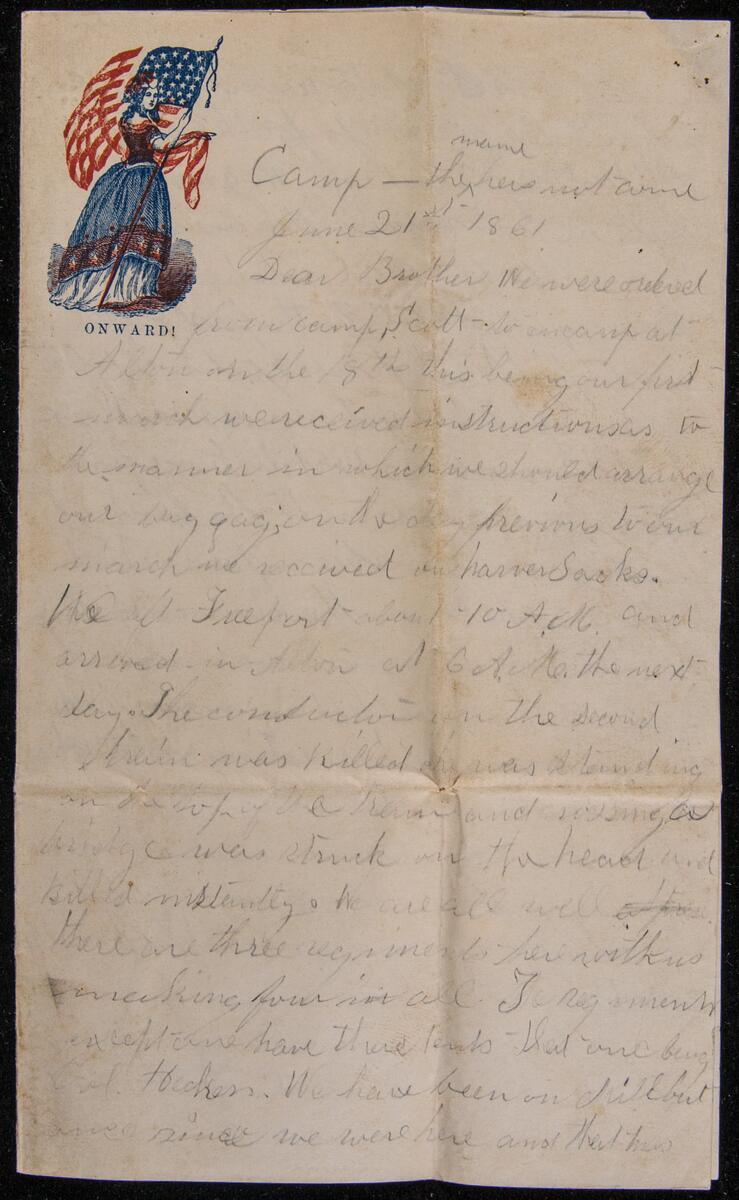 ONWARD!
name
Camp — the has not come
June 21st 1861
Dear Brother We were ordered
from camp Scott to encamp at
Alton on the 18th this being our first
march we received instructions as to
the manner in which we should arrange
our baggag, on the day previous to our
march we received our haversacks.
We left Freeport about 10 A.M. and
arrived in Alton at 6 A.M. the next
day. The conductor on the second
train was killed he was standing
on the top of the train and
bridge was struck on the head and
killed instantly. We are all well
there are three regiments here with us
making four in all regiments
except one have there tents that one being
Col. Heckers. We have been on drill but
once since we were here and that was